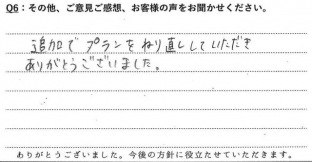 Q6：その他、ご意見ご感想、お客様の声をお聞かせください。
追加で プランを ねり直し していただき
ありがとうございました。
ありがとうございました。今後の方針に役立たせていただきます。